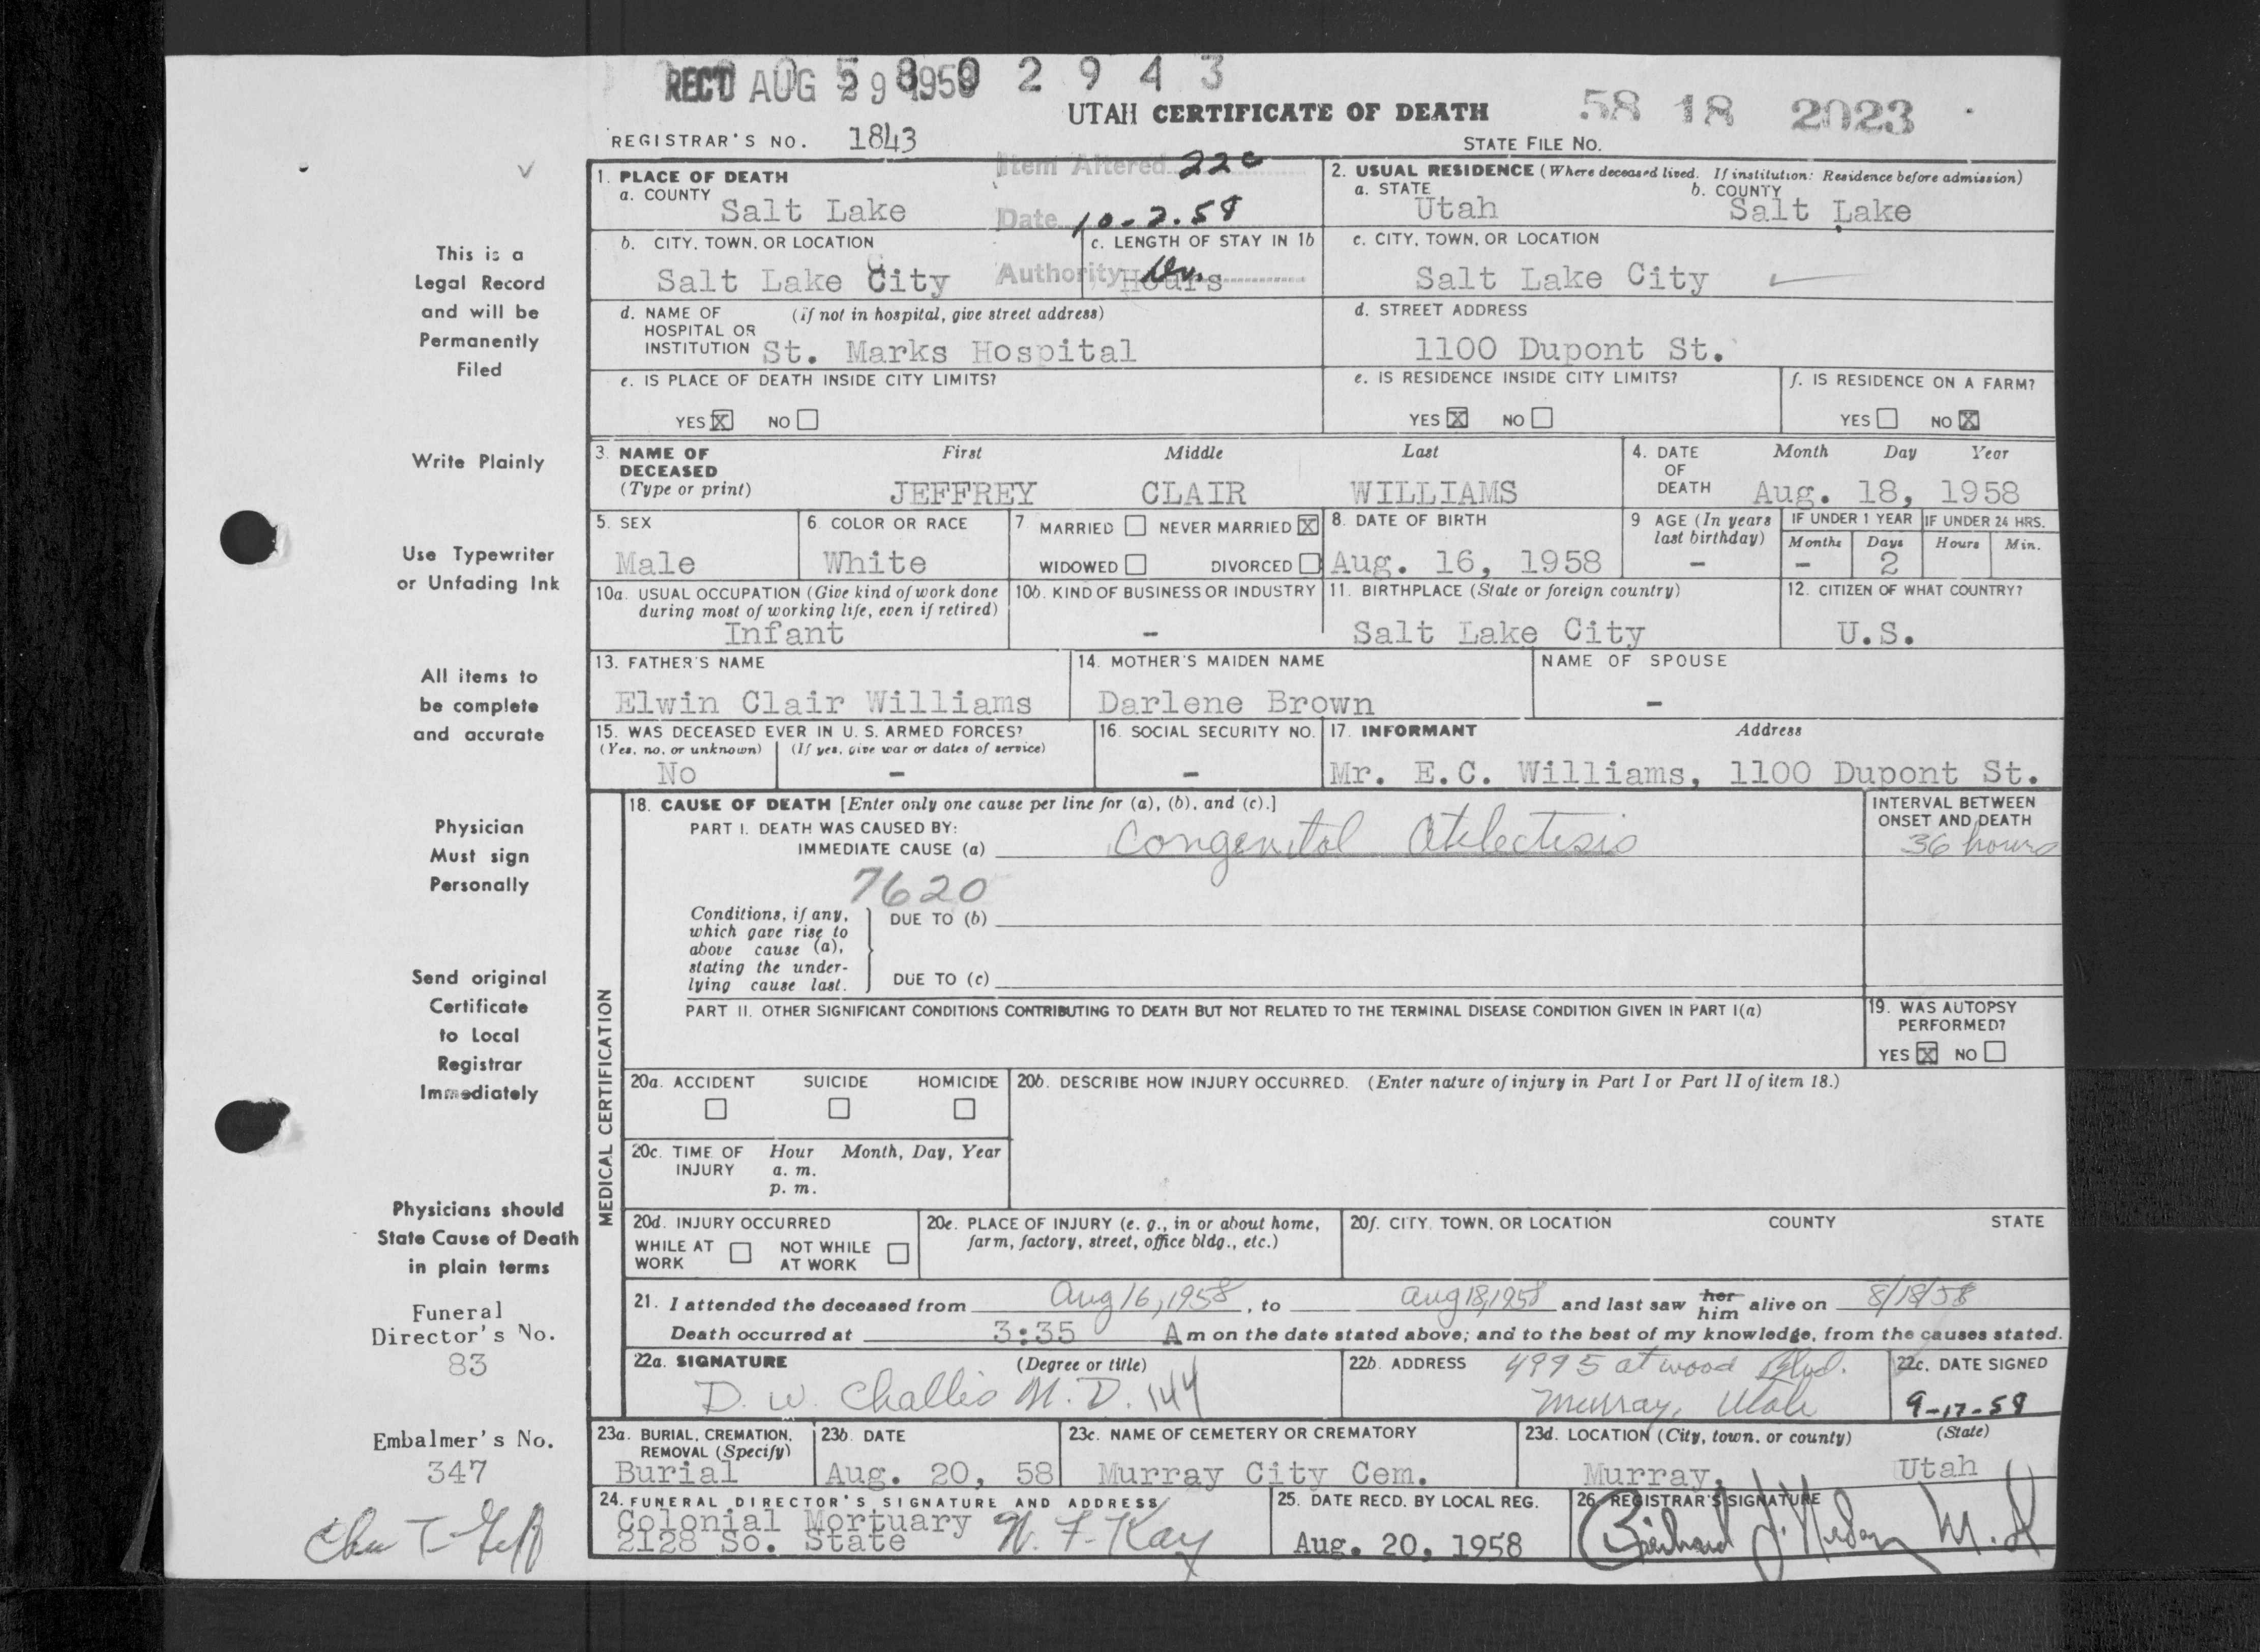 REC'D AUG 29 1958 0 2 9 4 3
UTAH CERTIFICATE OF DEATH
58 18 2023
REGISTRAR'S NO. 1843
STATE FILE NO.
Item Altered 22c
Date 10-2.58
Authority
1. PLACE OF DEATH
a. COUNTY
Salt Lake
2. USUAL RESIDENCE (Where deceased lived. If institution: Residence before admission)
a. STATE b. COUNTY
Utah Salt Lake
b. CITY, TOWN, OR LOCATION
Salt Lake City
c. LENGTH OF STAY IN 1b
Hours
c. CITY, TOWN, OR LOCATION
Salt Lake City
d. NAME OF HOSPITAL OR INSTITUTION (if not in hospital, give street address)
St. Marks Hospital
d. STREET ADDRESS
1100 Dupont St.
e. IS PLACE OF DEATH INSIDE CITY LIMITS?
YES X NO
e. IS RESIDENCE INSIDE CITY LIMITS?
YES X NO
f. IS RESIDENCE ON A FARM?
YES NO X
3. NAME OF DECEASED (Type or print)
First Middle Last
JEFFREY CLAIR WILLIAMS
4. DATE OF DEATH
Month Day Year
Aug. 18, 1958
5. SEX
Male
6. COLOR OR RACE
White
7 MARRIED NEVER MARRIED X
WIDOWED DIVORCED
8. DATE OF BIRTH
Aug. 16, 1958
9 AGE (In years last birthday)
-
IF UNDER 1 YEAR IF UNDER 24 HRS.
Months Days Hours Min.
- 2
10a. USUAL OCCUPATION (Give kind of work done during most of working life, even if retired)
Infant
10b. KIND OF BUSINESS OR INDUSTRY
-
11. BIRTHPLACE (State or foreign country)
Salt Lake City
12. CITIZEN OF WHAT COUNTRY?
U.S.
13. FATHER'S NAME
Elwin Clair Williams
14. MOTHER'S MAIDEN NAME
Darlene Brown
NAME OF SPOUSE
-
15. WAS DECEASED EVER IN U. S. ARMED FORCES?
(Yes, no, or unknown) (If yes, give war or dates of service)
No -
16. SOCIAL SECURITY NO.
-
17. INFORMANT Address
Mr. E.C. Williams, 1100 Dupont St.
MEDICAL CERTIFICATION
18. CAUSE OF DEATH [Enter only one cause per line for (a), (b), and (c).]
PART I. DEATH WAS CAUSED BY:
IMMEDIATE CAUSE (a) Congenital Atelectesis
INTERVAL BETWEEN ONSET AND DEATH
36 hours
7620
Conditions, if any, which gave rise to above cause (a), stating the underlying cause last.
DUE TO (b)
DUE TO (c)
PART II. OTHER SIGNIFICANT CONDITIONS CONTRIBUTING TO DEATH BUT NOT RELATED TO THE TERMINAL DISEASE CONDITION GIVEN IN PART I(a)
19. WAS AUTOPSY PERFORMED?
YES X NO
20a. ACCIDENT SUICIDE HOMICIDE
20b. DESCRIBE HOW INJURY OCCURRED. (Enter nature of injury in Part I or Part II of item 18.)
20c. TIME OF INJURY Hour Month, Day, Year
a. m.
p. m.
20d. INJURY OCCURRED
WHILE AT WORK NOT WHILE AT WORK
20e. PLACE OF INJURY (e. g., in or about home, farm, factory, street, office bldg., etc.)
20f. CITY, TOWN, OR LOCATION COUNTY STATE
21. I attended the deceased from Aug 16, 1958, to Aug 18, 1958 and last saw her him alive on 8/18/58
Death occurred at 3:35 A m on the date stated above; and to the best of my knowledge, from the causes stated.
22a. SIGNATURE (Degree or title)
D. W. Challis M.D. 144
22b. ADDRESS 4995 atwood Blvd.
Murray, Utah
22c. DATE SIGNED
9-17-58
23a. BURIAL, CREMATION, REMOVAL (Specify)
Burial
23b. DATE
Aug. 20, 58
23c. NAME OF CEMETERY OR CREMATORY
Murray City Cem.
23d. LOCATION (City, town, or county) (State)
Murray, Utah
24. FUNERAL DIRECTOR'S SIGNATURE AND ADDRESS
Colonial Mortuary
2128 So. State
N. F. Kay
25. DATE RECD. BY LOCAL REG.
Aug. 20, 1958
26. REGISTRAR'S SIGNATURE
This is a
Legal Record
and will be
Permanently
Filed
Write Plainly
Use Typewriter
or Unfading Ink
All items to
be complete
and accurate
Physician
Must sign
Personally
Send original
Certificate
to Local
Registrar
Immediately
Physicians should
State Cause of Death
in plain terms
Funeral
Director's No.
83
Embalmer's No.
347